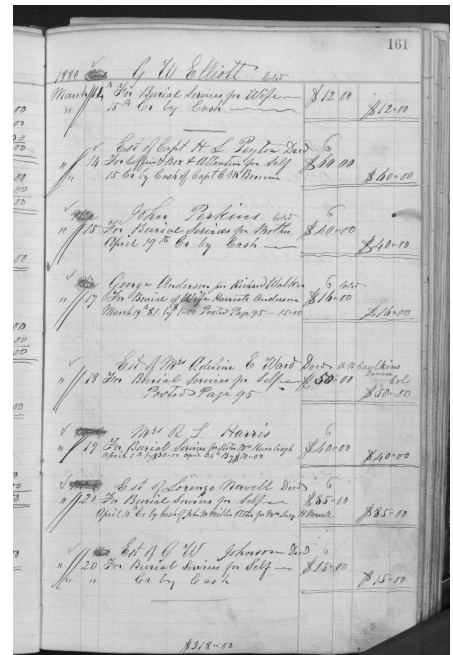 161
1880 G W Elliott Cold
March 14th For Burial Services for Wife $12.00
" 15th Cr by Cash $12=00
Est of Capt H L Peyton Decd 6
" 14 For Coffin & Box & Attention for Self $60.00
15 Cr by Cash of Capt C M $60=00
John Perkins Cold 6
" 15 For Burial Services for Mother $40=00
April 19th Cr by Cash $40=00
George Anderson per Richard Walker 6 Cold
" 17 For Burial of Wife Harriete Anderson $16=00
March 19th 81 by Posted Page 95 — 15.00 $16=00
Est of Mrs Adeline E Ward Decd
" 18 For Burial Services for Self $50=00
Posted Page 95 $50=00
Mrs R L Harris 6
" 19 For Burial Services for Sister Mrs $40=00
April 5th by $30=00 April 26th By $10=00 $40=00
Est of Lorenzo Norvell Decd 6
" 20 For Burial Services for Self $85=00
April Cr by Cash of John M Miller for Mrs Lucy H Norvell $85=00
Est of G W Johnson Decd 6
" 20 For Burial Services for Self $15=00
" " Cr by Cash $15=00
$318=00